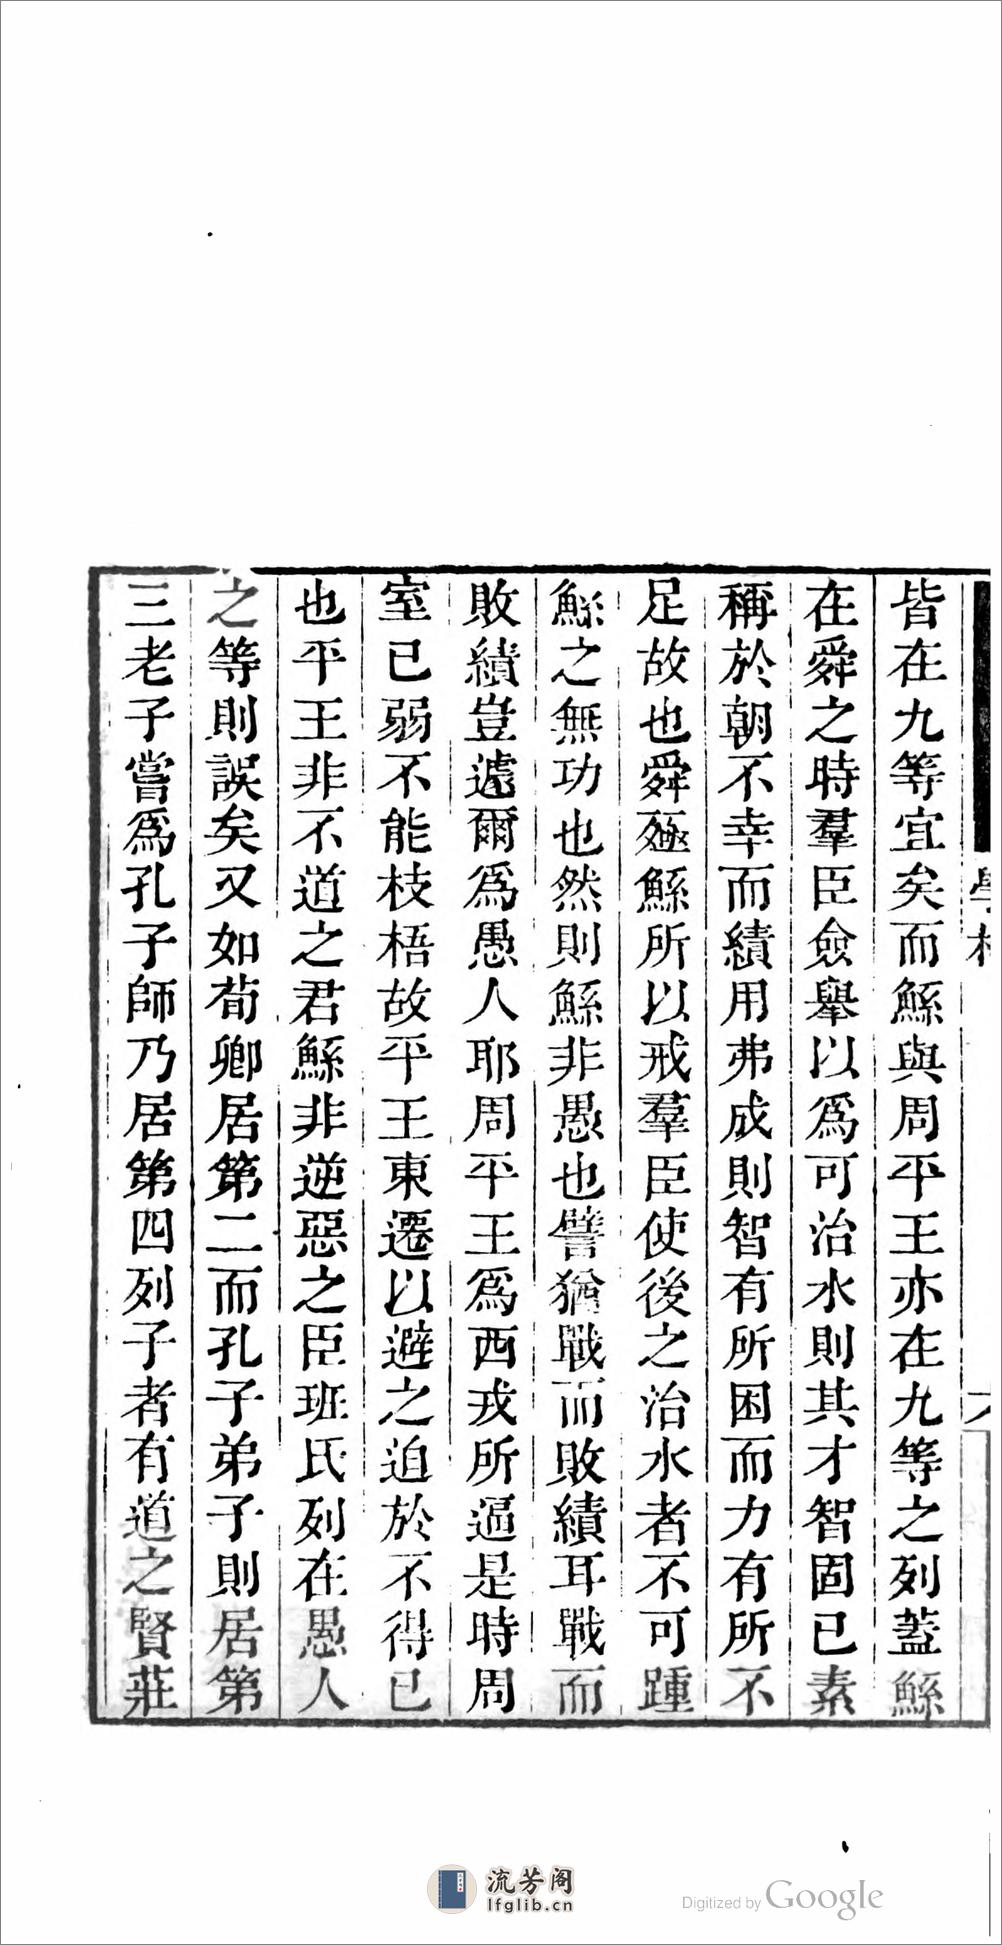 皆在九等宜矣而鯀與周平王亦在九等之列蓋鯀
在舜之時羣臣僉舉以爲可治水則其才智固已素
稱於朝不幸而績用弗成則智有所困而力有所不
足故也舜殛鯀所以戒羣臣使後之治水者不可踵
鯀之無功也然則鯀非愚也譬猶戰而敗績耳戰而
敗績豈遽爾爲愚人耶周平王爲西戎所逼是時周
室已弱不能枝梧故平王東遷以避之迫於不得已
也平王非不道之君鯀非逆惡之臣班氏列在愚人
之等則誤矣又如荀卿居第二而孔子弟子則居第
三老子嘗爲孔子師乃居第四列子者有道之賢莊
流芳阁
lfglib.cn
Digitized by Google